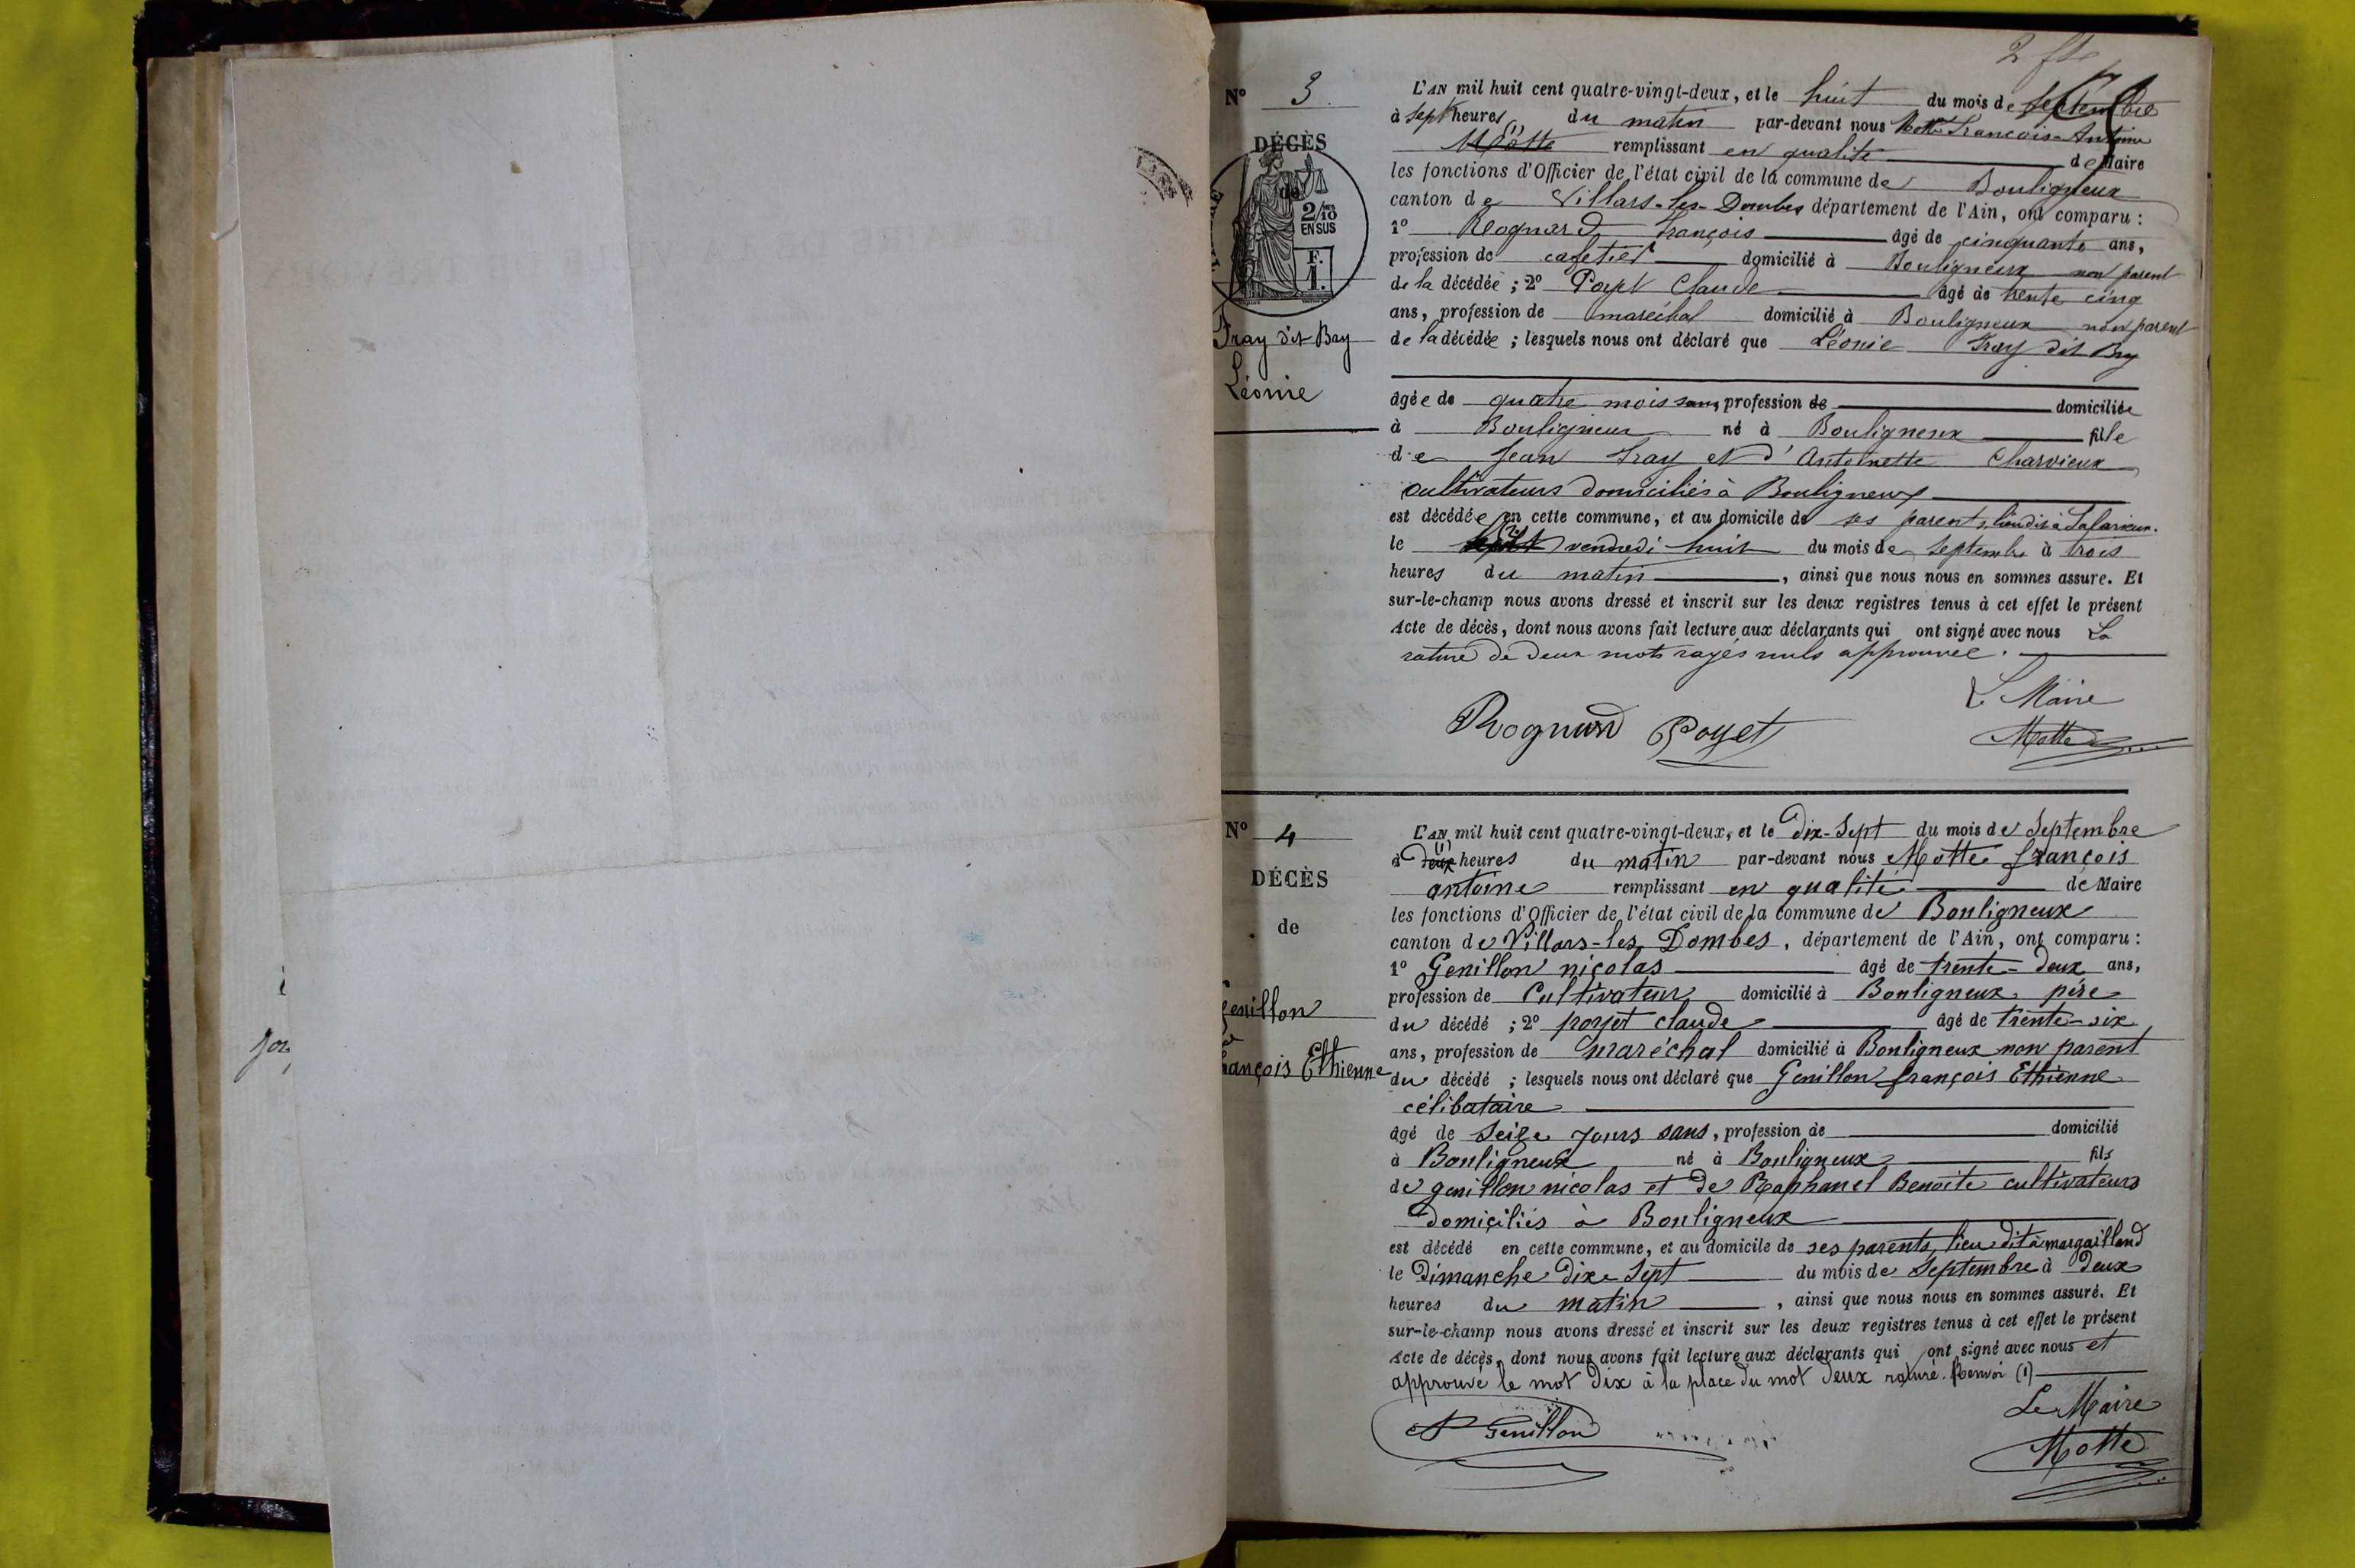 2 fte
N° 3
DÉCÈS
de
2/10
EN SUS
F.
1.
Fray dit Bry
Léonie
L'AN mil huit cent quatre-vingt-deux, et le huit du mois de septembre
à sept heures du matin par-devant nous Motte François-Antoine
(1) Motte remplissant en qualité de Maire
les fonctions d'Officier de l'état civil de la commune de Bouligneux
canton de Villars-les-Dombes département de l'Ain, ont comparu :
1° Rognard François âgé de cinquante ans,
profession de cafetier domicilié à Bouligneux non parent
de la décédée ; 2° Poyet Claude âgé de trente cinq
ans, profession de maréchal domicilié à Bouligneux non parent
de la décédée ; lesquels nous ont déclaré que Léonie Fray dit Bry
âgée de quatre mois sans profession de domiciliée
à Bouligneux né à Bouligneux fille
de Jean Fray et d'Antoinette Charvieux
cultivateurs domiciliés à Bouligneux
est décédée en cette commune, et au domicile de ses parents, lieu dit à
le vendredi huit du mois de septembre à trois
heures du matin, ainsi que nous nous en sommes assure. Et
sur-le-champ nous avons dressé et inscrit sur les deux registres tenus à cet effet le présent
Acte de décès, dont nous avons fait lecture aux déclarants qui ont signé avec nous La
rature de deux mots rayés nuls approuvée.
Le Maire
Rognard Poyet Motte
N° 4
DÉCÈS
de
Genillon
François Ethienne
L'AN mil huit cent quatre-vingt-deux, et le Dix-Sept du mois de Septembre
à deux (1) heures du matin par-devant nous Motte françois
antoine remplissant en qualité de Maire
les fonctions d'Officier de l'état civil de la commune de Bouligneux
canton de Villars-les Dombes, département de l'Ain, ont comparu :
1° Genillon nicolas âgé de trente-deux ans,
profession de Cultivateur domicilié à Bouligneux père
du décédé ; 2° poyet claude âgé de trente-six
ans, profession de maréchal domicilié à Bouligneux non parent
du décédé ; lesquels nous ont déclaré que Genillon françois Ethienne
célibataire
âgé de Seize jours sans, profession de domicilié
à Bouligneux né à Bouligneux fils
de genillon nicolas et de Raphanel Benoite cultivateurs
domiciliés à Bouligneux
est décédé en cette commune, et au domicile de ses parents, lieu dit à margailland
le Dimanche dix-Sept du mois de Septembre à Deux
heures du matin, ainsi que nous nous en sommes assuré. Et
sur-le-champ nous avons dressé et inscrit sur les deux registres tenus à cet effet le présent
Acte de décès, dont nous avons fait lecture aux déclarants qui ont signé avec nous et
approuvé le mot Dix à la place du mot Deux raturé. Renvoi (1)
Le Maire
N Genillon Motte